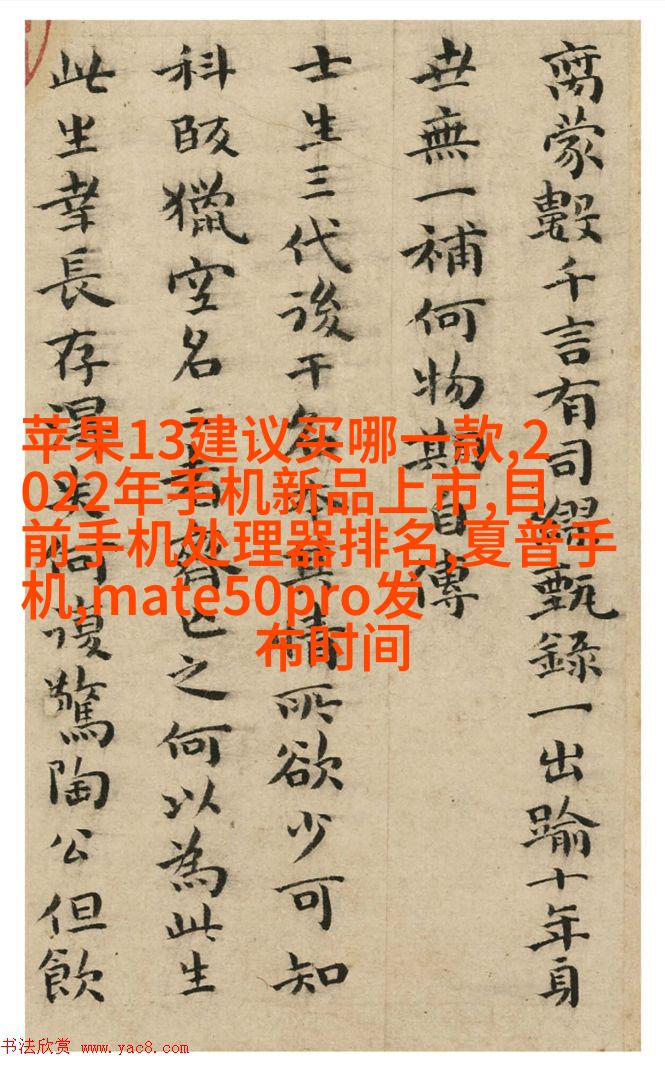 蒙數千言有司繆甄錄一出踰十年身
世無一補何物期自傳
士生三代後情所欲少可知
科獵空名者亡之何以為此生
此生幸長存何復驚陶公但飲
苹果13建议买哪一款,2
022年手机新品上市,目
前手机处理器排名,夏普手
机,mate50pro发
布时间
书法欣赏 www.yac8.com